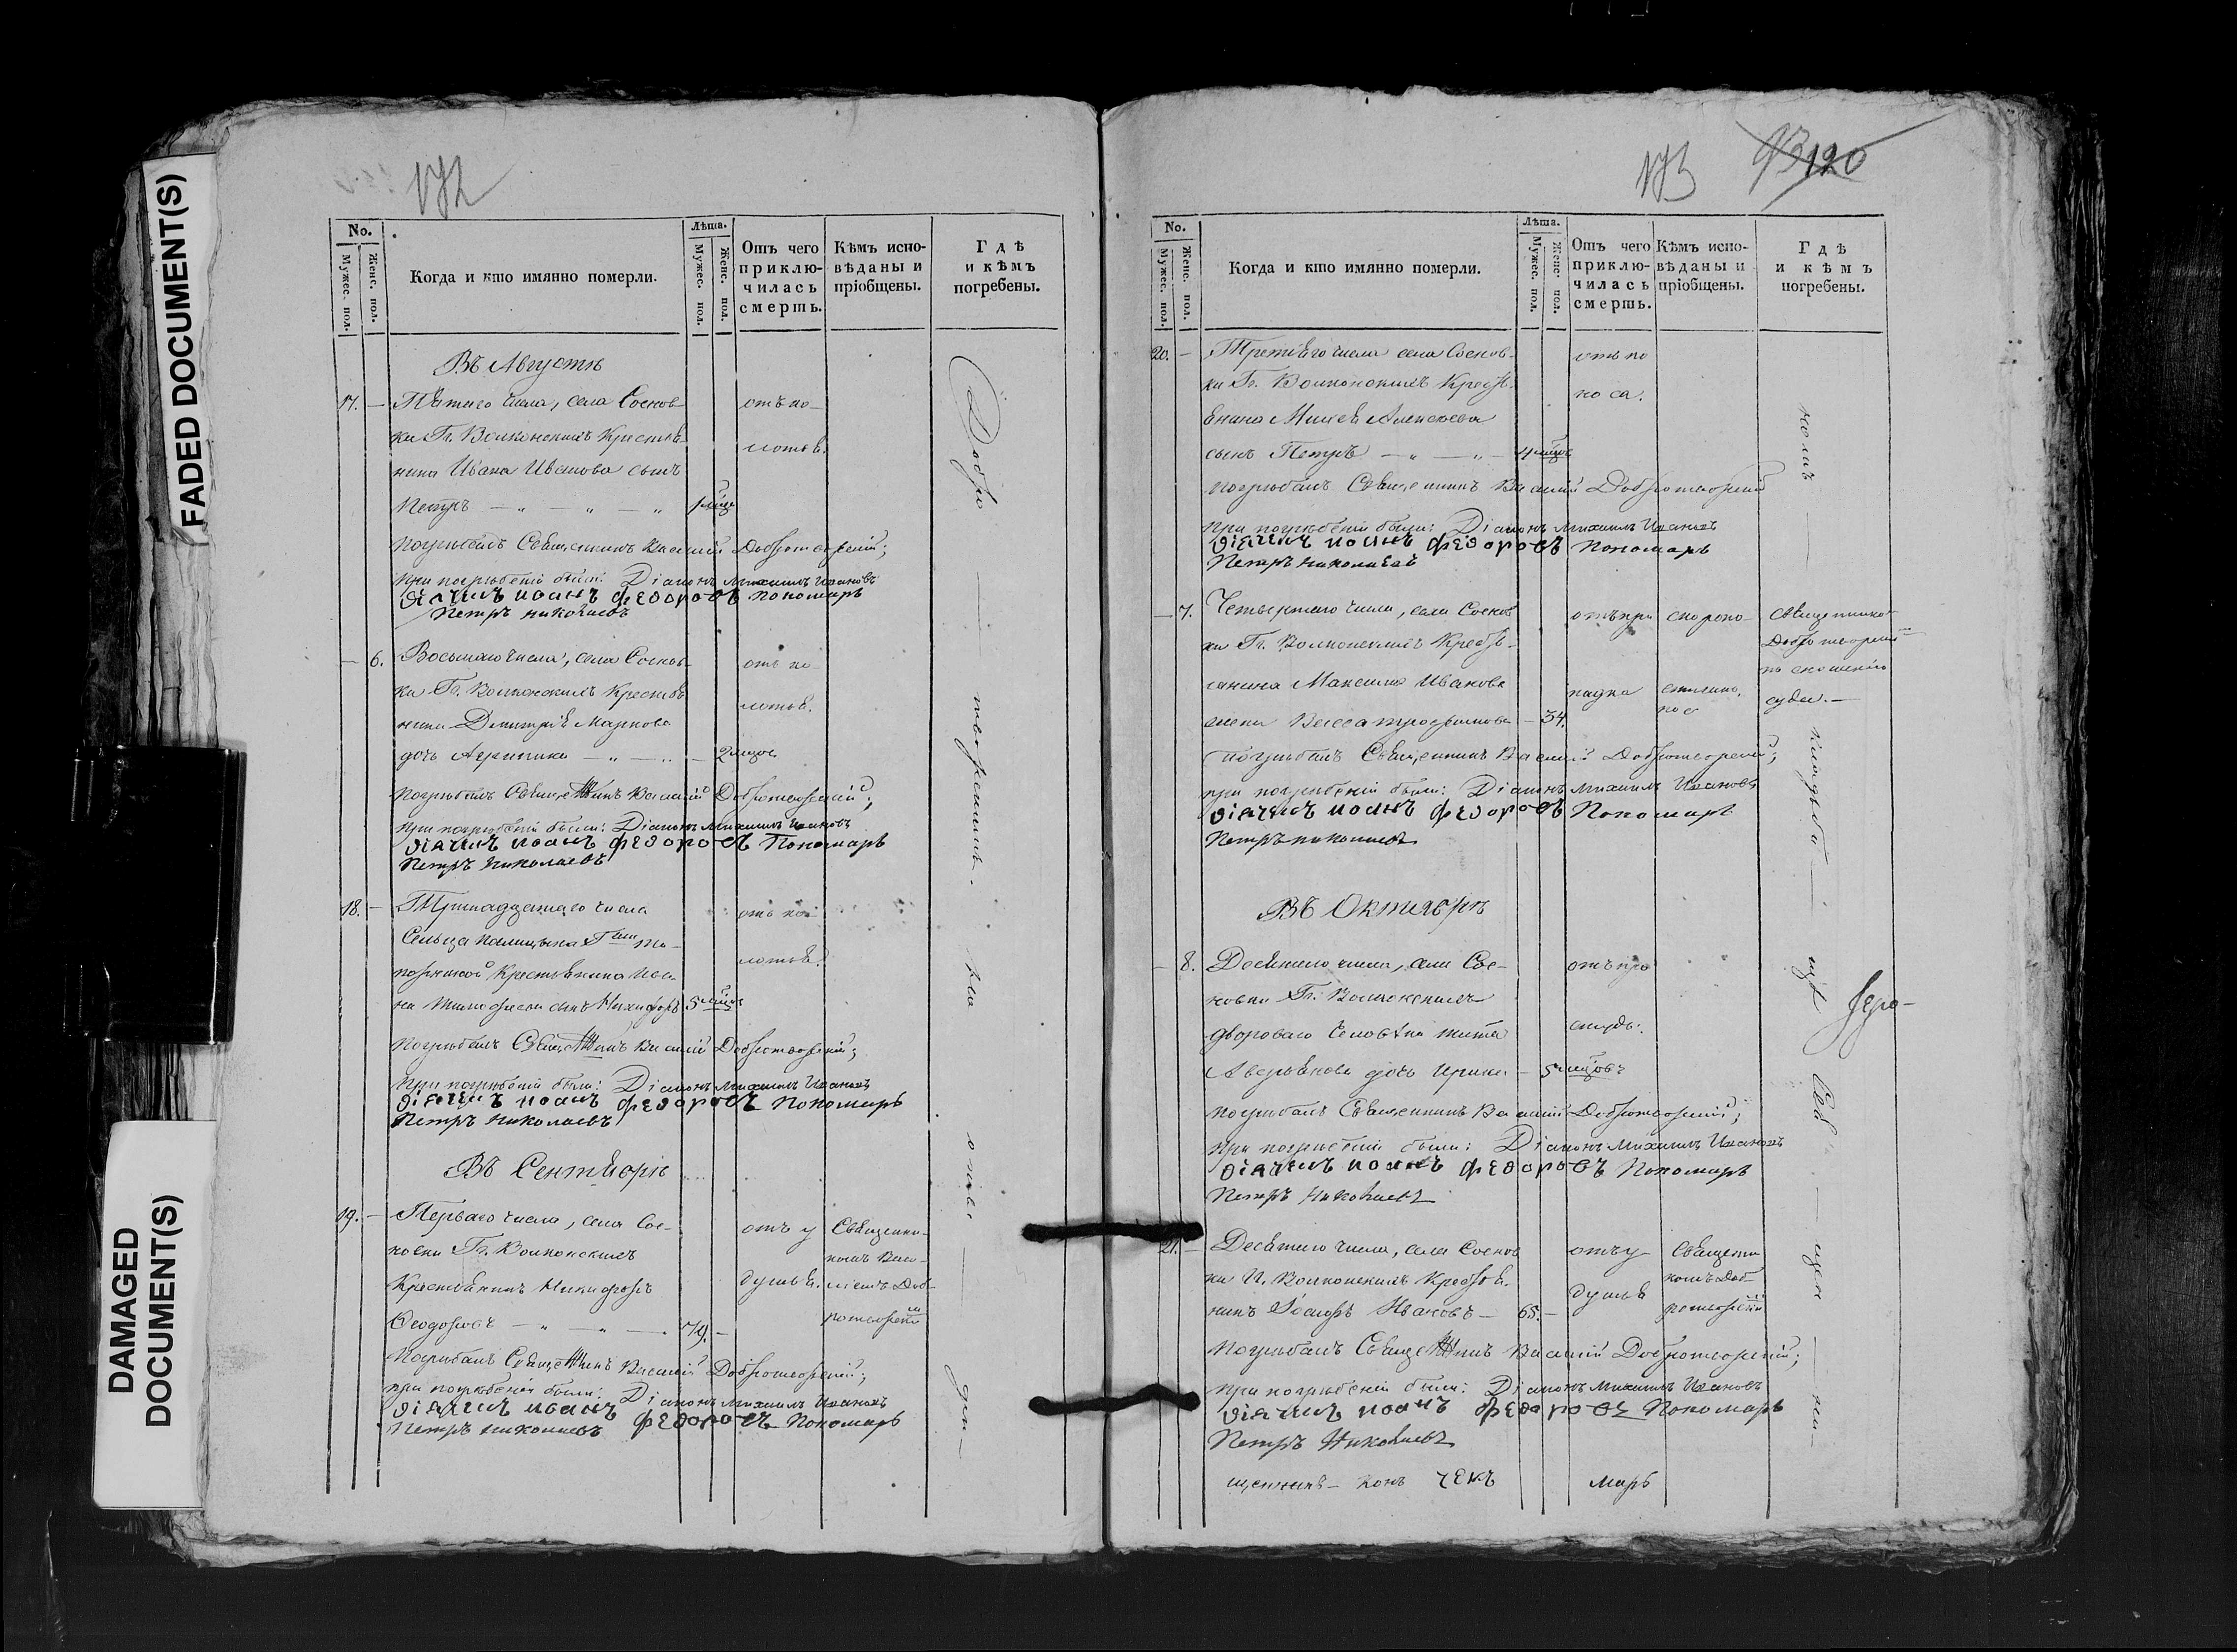 FADED DOCUMENT(S)
DAMAGED
DOCUMENT(S)
172
No.
Мужес. пол.
Женс. пол.
Когда и кто имянно померли.
Лѣта.
Мужес. пол.
Женс. пол.
Отъ чего
приклю-
чилась
смерть.
Кѣмъ испо-
вѣданы и
пріобщены.
Гдѣ
и кѣмъ
погребены.
Въ Августѣ
17. — Пятаго числа, села Соснов- отъ ко-
ки Гг. Волконскихъ Крестья- лотья.
нина Ивана Иванова сынъ
Петръ — „ — „ — „ 1 мѣц
Погребалъ Священникъ Василій Добротворскій;
при погребеніи были: Діаконъ Михаилъ Ивановъ
діячекъ иоанъ федоровъ Пономарь
Петръ николаевъ
— 6. Восьмаго числа, села Соснов- отъ ко-
ки Гг. Волконскихъ Крестья- лотья.
нина Димитрія Маркова
дочь Агрипина — „ — „ — 2 мѣцов
Погребалъ Священникъ Василій Добротворскій;
при погребеніи были: Діаконъ Михаилъ Ивановъ
діячекъ иоанъ федоровъ Пономарь
Петръ николаевъ
18. — Тринадцатаго числа отъ ко-
Сельца Г жи лотья.
Крестьянина Ива-
на сынъ Никифоръ 5 мѣцов
Погребалъ Священникъ Василій Добротворскій;
при погребеніи были: Діаконъ Михаилъ Ивановъ
діячекъ иоанъ федоровъ Пономарь
Петръ николаевъ
Въ Сентябрѣ
19. — Перваго числа, села Сос- отъ у Священни-
новки Гг. Волконскихъ комъ Васи-
Крестьянинъ Никифоръ душья. ліемъ Доб-
Ѳеодоровъ — „ — „ — 79. — ротворскимъ
Погребалъ Священникъ Василій Добротворскій;
при погребеніи были: Діаконъ Михаилъ Ивановъ
діячекъ иоанъ федоровъ Пономарь
Петръ николаевъ
Добро — творскимъ. на
173
120
No.
Мужес. пол.
Женс. пол.
Когда и кто имянно померли.
Лѣта.
Мужес. пол.
Женс. пол.
Отъ чего
приклю-
чилась
смерть.
Кѣмъ испо-
вѣданы и
пріобщены.
Гдѣ
и кѣмъ
погребены.
20. — Третьяго числа села Соснов- отъ по
ки Гг. Волконскихъ Кресть- носа.
янина Алексѣева
сынъ Петръ — „ — „ — 4 мѣцов
погребалъ Священникъ Василій Добротворскій
при погребеніи были: Діаконъ Михаилъ Ивановъ
діячекъ иоанъ федоровъ Пономарь
Петръ николаевъ
— 7. Четвертаго числа, села Соснов отъ при скоропо- Священнико
ки Гг. Волконскихъ Кресть- Добротворским
янина Максима Иванова падка стижно. по сношенію
жена Васса Трофимова — 34. суда. —
погребалъ Священникъ Василій Добротворскій;
при погребеніи были: Діаконъ Михаилъ Ивановъ
діячекъ иоанъ федоровъ Пономарь
Петръ николаевъ
Въ Октябрѣ
— 8. Десятаго числа, села Сос- отъ про
новки Гг. Волконскихъ
двороваго человѣка Тита студы.
Аверьянова дочь Ирина — 5 мѣцовъ
погребалъ Священникъ Василій Добротворскій;
при погребеніи были: Діаконъ Михаилъ Ивановъ
діячекъ иоанъ федоровъ Пономарь
Петръ Николаевъ
21. — Десятаго числа, села Соснов отъ у Священни
ки Гг. Волконскихъ Крестья- комъ Доб
нинъ Ивановъ — 65. — душья ротворским
Погребалъ Священникъ Василій Добротворскій;
при погребеніи были: Діаконъ Михаилъ Ивановъ
діячекъ иоанъ федоровъ Пономарь
Петръ Николаевъ
щенникъ — конъ чекъ марь
номъ — кладби — щѣ Свя — щен — ни —